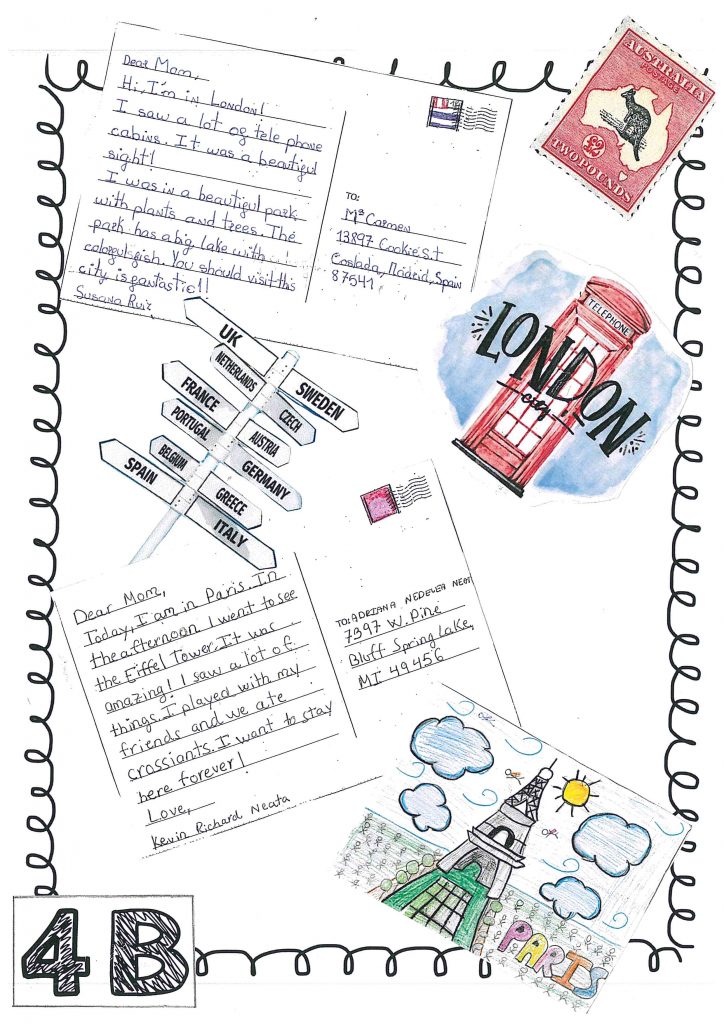 Dear Mom,
Hi, I'm in London!
I saw a lot og tele phone
cabins. It was a beautiful
sight!
I was in a beautiful park
with plants and trees. The
park has a big lake with
cologulgish. You should visit this
city is gantastic!!
Susana Ruiz
TO:
Mª Carmen
13897 Cookie s.t
Coslada, Madrid, Spain
87541
AUSTRALIA
POSTAGE
£2
TWO POUNDS
TELEPHONE
LONDON
city
UK
NETHERLANDS
SWEDEN
FRANCE
CZECH
PORTUGAL
AUSTRIA
BELGIUM
GERMANY
SPAIN
GREECE
ITALY
Dear Mom,
Today, I am in Paris. In
the afternoon I went to see
the Eiffel Tower. It was
amazing! I saw a lot of
things. I played with my
friends and we ate
crossiants. I want to stay
here forever!
Love,
Kevin Richard Neata
TO: ADRIANA NEDELEA NEAT
7397 W. Pine
Bluff Spring Lake,
MI 49456
PARIS
4B